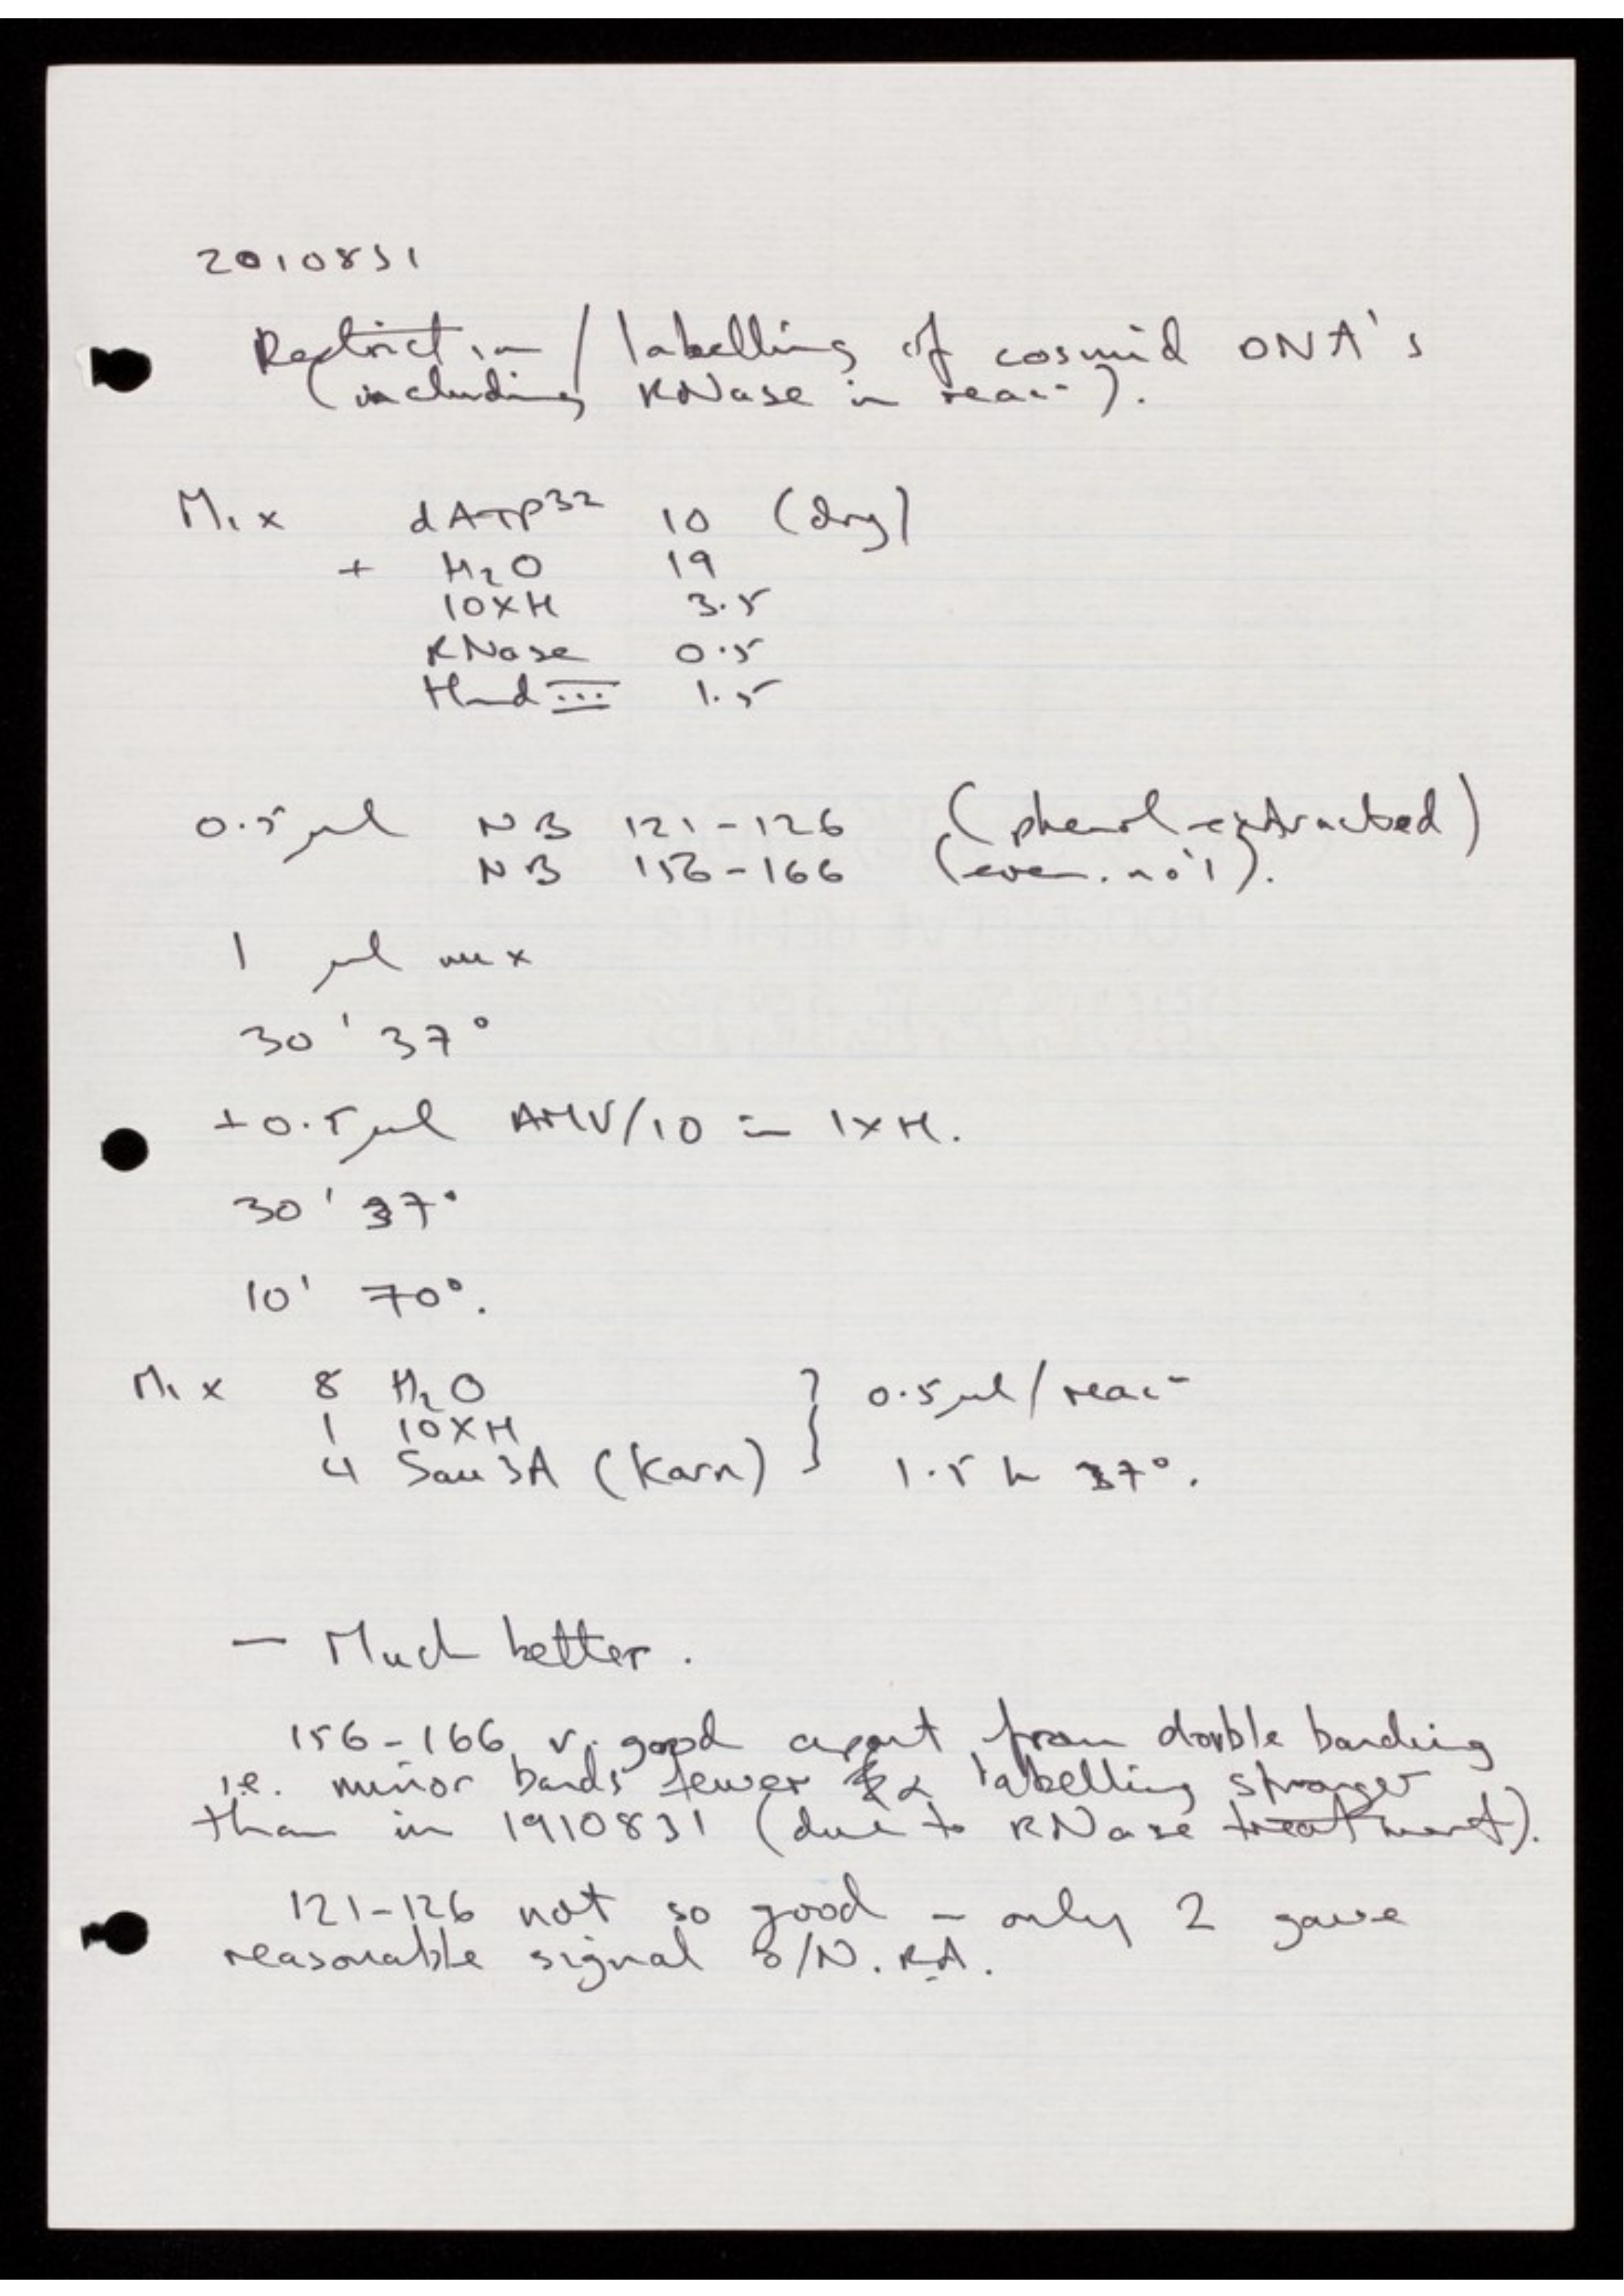 2010831
Restriction / labelling of cosmid DNA's
(including RNase in reac-).
Mix dATP32 10 (dry)
+ H2O 19
10XH 3.5
RNase 0.5
Hind III 1.5
0.5 µl NB 121-126 (phenol-extracted)
NB 156-166 (even. no's).
1 µl mix
30' 37°
+0.5 µl AMV/10 in 1xH.
30' 37°
10' 70°.
Mix 8 H2O } 0.5 µl/reac-
1 10XH
4 Sau3A (Karn) 1.5 h 37°.
- Much better.
156-166 v. good apart from double banding
i.e. minor bands fewer & labelling stronger
than in 1910831 (due to RNase treatment).
121-126 not so good - only 2 gave
reasonable signal